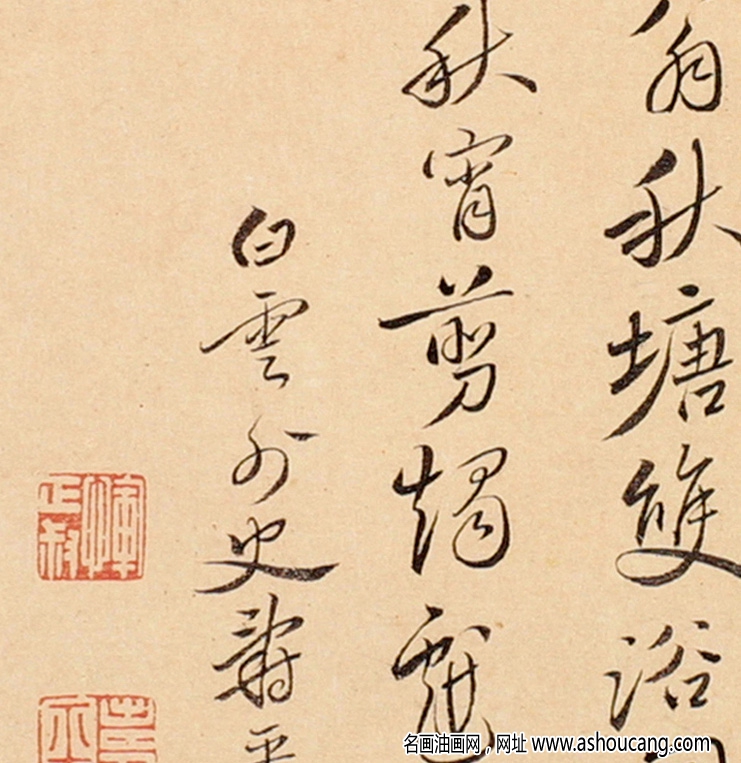 翁秋塘雙浴
秋宵剪燭戲
白雲外史壽平
惲正叔
名画油画网，网址 www.ashoucang.com